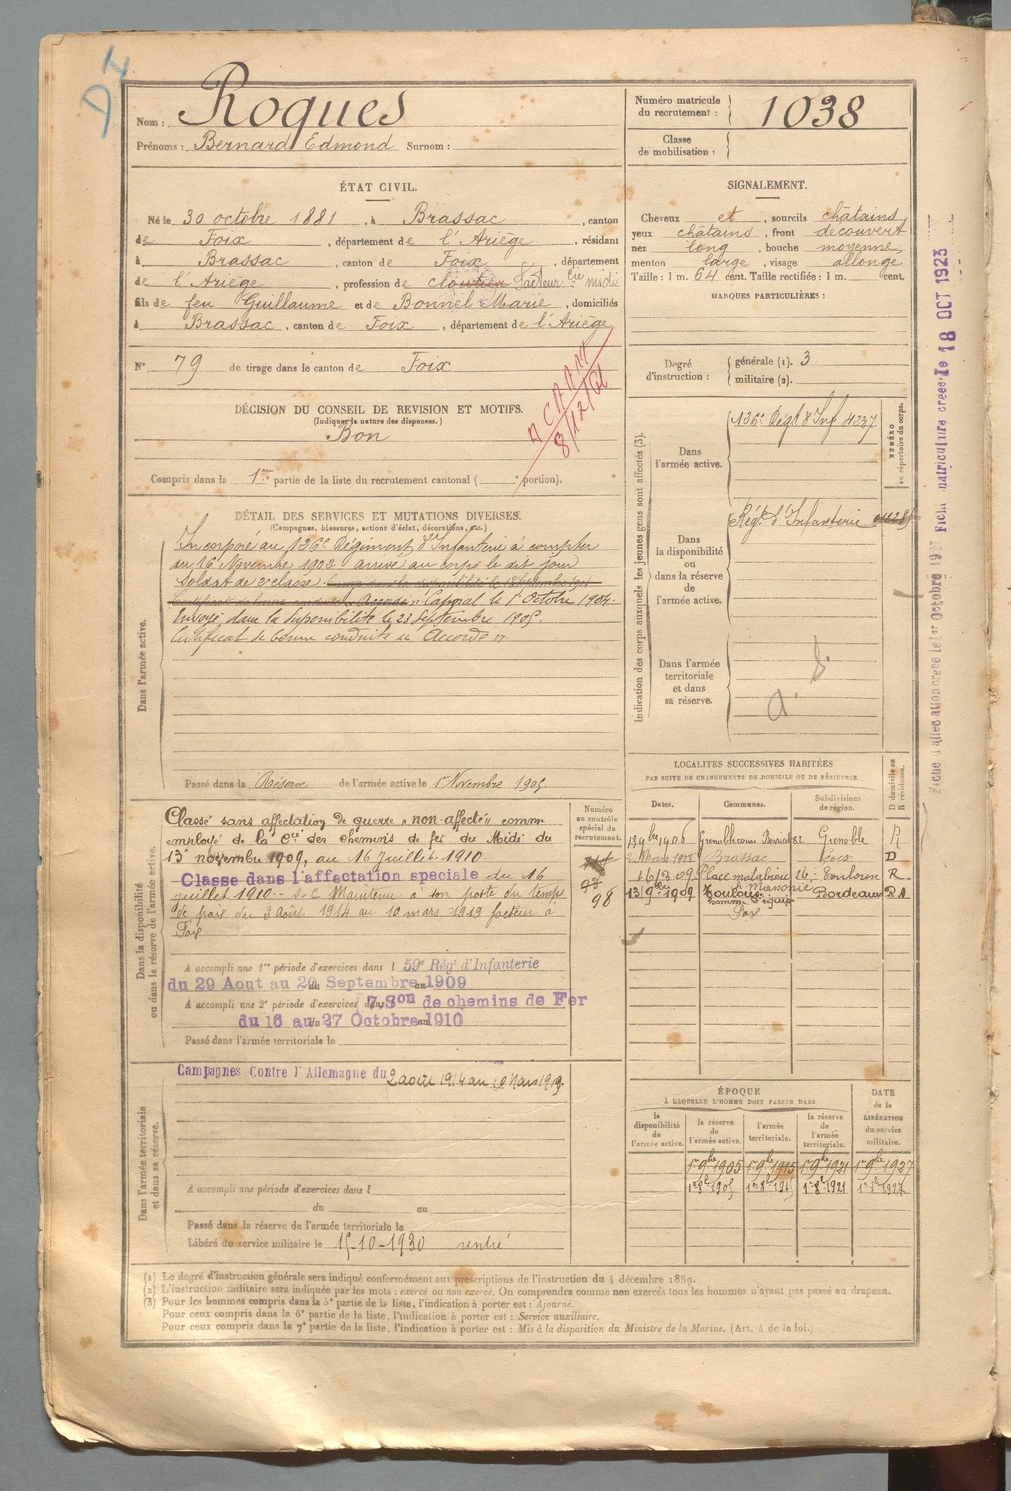 D4
Nom : Roques
Prénoms : Bernard Edmond Surnom :
Numéro matricule du recrutement : 1038
Classe de mobilisation :
ÉTAT CIVIL.
Né le 30 octobre 1881, à Brassac, canton
de Foix, département de l'Ariège, résidant
à Brassac, canton de Foix, département
de l'Ariège, profession de cloutier facteur Cie midi
fils de feu Guillaume et de Bonnel Marie, domiciliés
à Brassac, canton de Foix, département de l'Ariège
N° 79 de tirage dans le canton de Foix
SIGNALEMENT.
Cheveux et, sourcils châtains
yeux châtains, front découvert
nez long, bouche moyenne
menton large, visage allongé
Taille : 1 m. 64 cent. Taille rectifiée : 1 m. cent.
MARQUES PARTICULIÈRES :
Degré d'instruction : générale (1). 3
militaire (2).
DÉCISION DU CONSEIL DE REVISION ET MOTIFS.
(Indiquer la nature des dispenses.)
Bon
Compris dans la 1re partie de la liste du recrutement cantonal ( portion).
8/12/61
DÉTAIL DES SERVICES ET MUTATIONS DIVERSES.
(Campagnes, blessures, actions d'éclat, décorations, etc.)
Dans l'armée active.
Incorporé au 126e Régiment d'Infanterie à compter
du 16 Novembre 1902 arrivé au corps le dit jour
Soldat de 2e classe
Caporal le 1er Octobre 1904.
Envoyé dans la disponibilité le 23 Septembre 1905.
Certificat de bonne conduite "Accordé".
Passé dans la Réserve de l'armée active le 1er Novembre 1905
Indication des corps auxquels les jeunes gens sont affectés (3).
NUMÉRO au répertoire du corps.
Dans l'armée active.
126e Régt d'Inf 4237
Dans la disponibilité ou dans la réserve de l'armée active.
Régt d'Infanterie
Dans l'armée territoriale et dans sa réserve.
Dans la disponibilité ou dans la réserve de l'armée active.
Classé sans affectation de guerre "non-affecté" comme
employé de la Cie des chemins de fer du Midi du
13 novembre 1909, au 16 Juillet 1910.
Classe dans l'affectation speciale du 16
juillet 1910 Maintenu à son poste du temps
de paix du 2 Août 1914 au 10 mars 1919 facteur à
Foix
A accompli une 1re période d'exercices dans l 59e Régt d'Infanterie
du 29 Aout au 20 Septembre 1909
A accompli une 2e période d'exercices dans 7e Son de chemins de Fer
du 16 au 27 Octobre 1910
Passé dans l'armée territoriale le
Numéro au contrôle spécial du recrutement.
98
LOCALITÉS SUCCESSIVES HABITÉES
PAR SUITE DE CHANGEMENTS DE DOMICILE OU DE RÉSIDENCE.
Dates. Communes. Subdivisions de région. D domicile ou R résidence.
13 9bre 1906 Grenoble Grenoble R
2 Mars 1908 Brassac Foix D
16/3 09 Place matabiau 26. Toulouse R
13 9bre 1909 Toulouse Bordeaux R
Foix
Dans l'armée territoriale et dans sa réserve.
Campagnes Contre l'Allemagne du 2 août 1914 au 10 Mars 1919.
A accompli une période d'exercices dans l
du au
Passé dans la réserve de l'armée territoriale le
Libéré du service militaire le 15-10-1930
ÉPOQUE
À LAQUELLE L'HOMME DOIT PASSER DANS
la disponibilité de l'armée active. la réserve de l'armée active. l'armée territoriale. la réserve de l'armée territoriale.
DATE de la LIBÉRATION du service militaire.
1er 9bre 1905 1er 9bre 1915 1er 9bre 1921 1er 9bre 1927
1er 8bre 1905 1er 8bre 1915 1er 8bre 1921 1er 8bre 1927
(1) Le degré d'instruction générale sera indiqué conformément aux prescriptions de l'instruction du 4 décembre 1889.
(2) L'instruction militaire sera indiquée par les mots : exercé ou non exercé. On comprendra comme non exercés tous les hommes n'ayant pas passé au drapeau.
(3) Pour les hommes compris dans la 5e partie de la liste, l'indication à porter est : Ajourné.
Pour ceux compris dans la 6e partie de la liste, l'indication à porter est : Service auxiliaire.
Pour ceux compris dans la 7e partie de la liste, l'indication à porter est : Mis à la disposition du Ministre de la Marine. (Art. 4 de la loi.)
Fiche matriculture creee le 18 OCT 1923
Fiche d'affectation creee le 1er Octobre